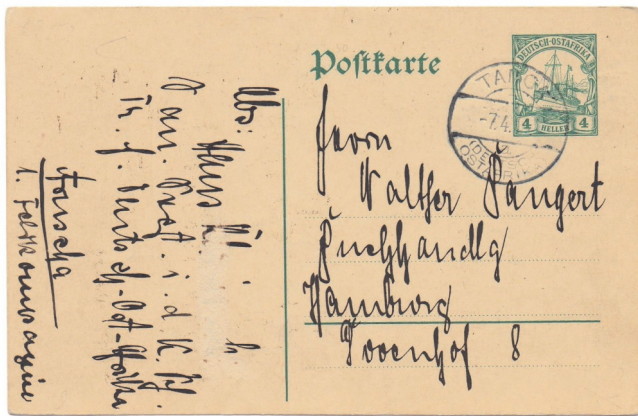 Postkarte
DEUTSCH-OSTAFRIKA
4 HELLER 4
TANGA
-7.4.
(DEUTSCH-
OSTAFRIKA)
Herrn
Walther Bangert
Buchhandlg
Hamburg
8
Abs:
Hans
d. K. Sch.
Tr. f. Deutsch-Ost-Afrika
Aruscha
1. Feldkompagnie